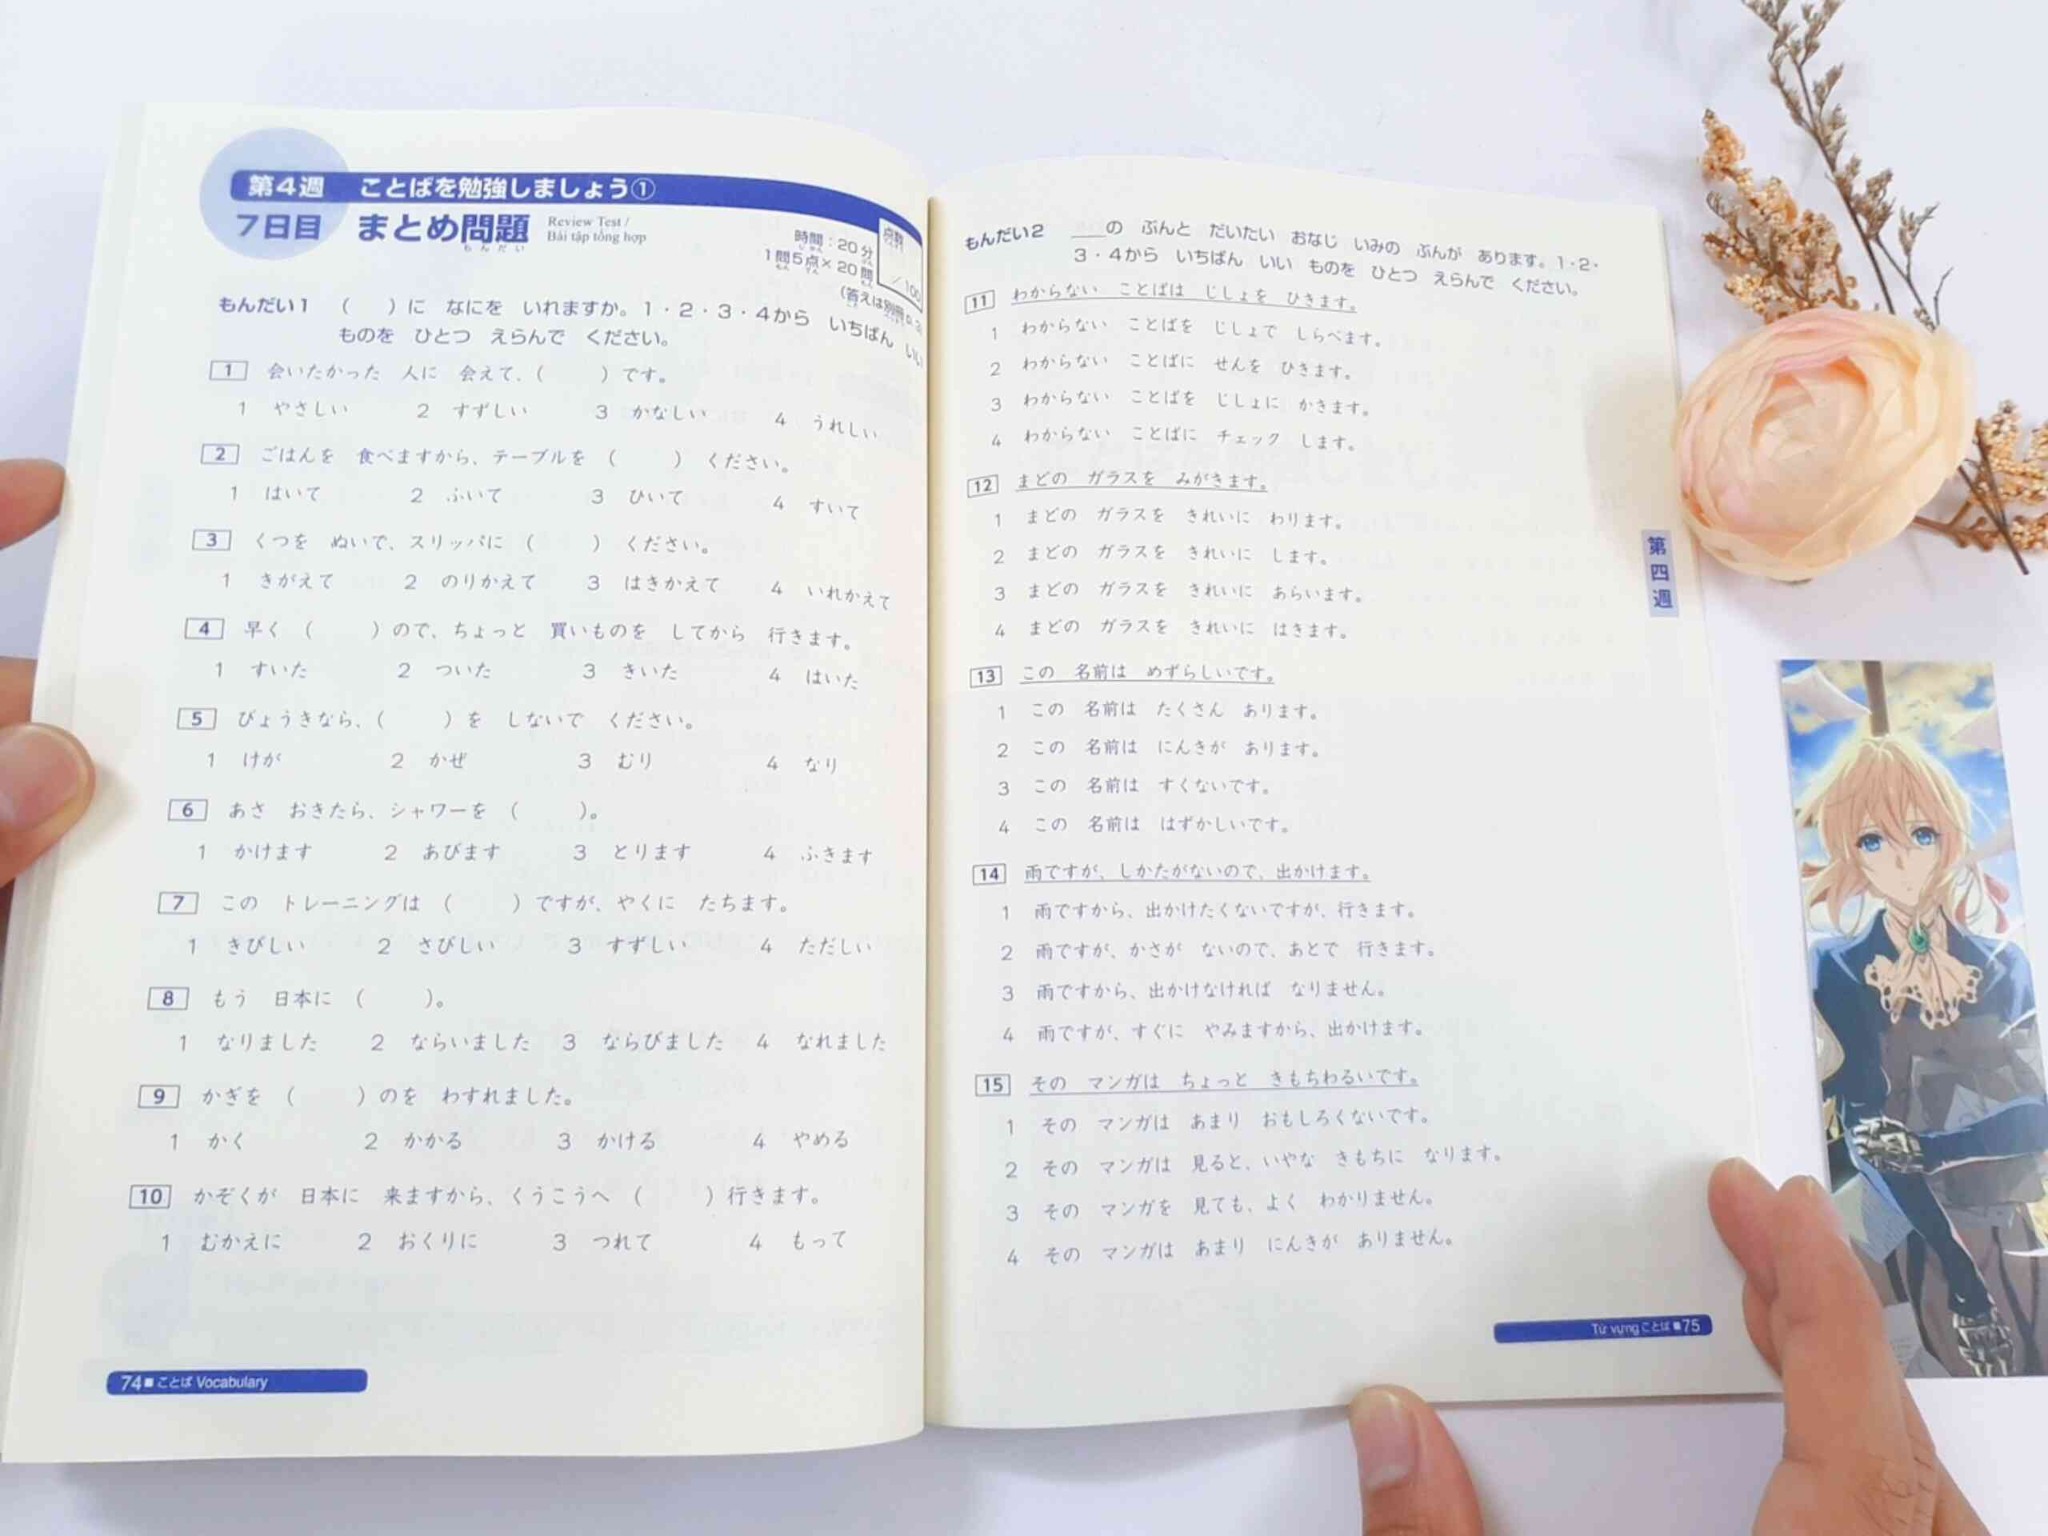 第4週 ことばを勉強しましょう①
7日目 まとめ問題
もんだい
Review Test /
Bài tập tổng hợp
時間：20分
1問5点×20問
(答えは別冊p.3)
点数
／100
もんだい1 （　）に なにを いれますか。1・2・3・4から いちばん いい
ものを ひとつ えらんで ください。
1 会いたかった 人に 会えて、（　）です。
1 やさしい 2 すずしい 3 かなしい 4 うれしい
2 ごはんを 食べますから、テーブルを （　） ください。
1 はいて 2 ふいて 3 ひいて 4 すいて
3 くつを ぬいで、スリッパに （　） ください。
1 きがえて 2 のりかえて 3 はきかえて 4 いれかえて
4 早く （　）ので、ちょっと 買いものを してから 行きます。
1 すいた 2 ついた 3 きいた 4 はいた
5 びょうきなら、（　）を しないで ください。
1 けが 2 かぜ 3 むり 4 なり
6 あさ おきたら、シャワーを （　）。
1 かけます 2 あびます 3 とります 4 ふきます
7 この トレーニングは （　）ですが、やくに たちます。
1 きびしい 2 さびしい 3 すずしい 4 ただしい
8 もう 日本に （　）。
1 なりました 2 ならいました 3 ならびました 4 なれました
9 かぎを （　）のを わすれました。
1 かく 2 かかる 3 かける 4 やめる
10 かぞくが 日本に 来ますから、くうこうへ （　）行きます。
1 むかえに 2 おくりに 3 つれて 4 もって
74■ことば Vocabulary
もんだい2 ＿＿の ぶんと だいたい おなじ いみの ぶんが あります。1・2・
3・4から いちばん いい ものを ひとつ えらんで ください。
11 わからない ことばは じしょを ひきます。
1 わからない ことばを じしょで しらべます。
2 わからない ことばに せんを ひきます。
3 わからない ことばを じしょに かきます。
4 わからない ことばに チェック します。
12 まどの ガラスを みがきます。
1 まどの ガラスを きれいに わります。
2 まどの ガラスを きれいに します。
3 まどの ガラスを きれいに あらいます。
4 まどの ガラスを きれいに はきます。
13 この 名前は めずらしいです。
1 この 名前は たくさん あります。
2 この 名前は にんきが あります。
3 この 名前は すくないです。
4 この 名前は はずかしいです。
14 雨ですが、しかたがないので、出かけます。
1 雨ですから、出かけたくないですが、行きます。
2 雨ですが、かさが ないので、あとで 行きます。
3 雨ですから、出かけなければ なりません。
4 雨ですが、すぐに やみますから、出かけます。
15 その マンガは ちょっと きもちわるいです。
1 その マンガは あまり おもしろくないです。
2 その マンガは 見ると、いやな きもちに なります。
3 その マンガを 見ても、よく わかりません。
4 その マンガは あまり にんきが ありません。
第四週
Từ vựng ことば■75